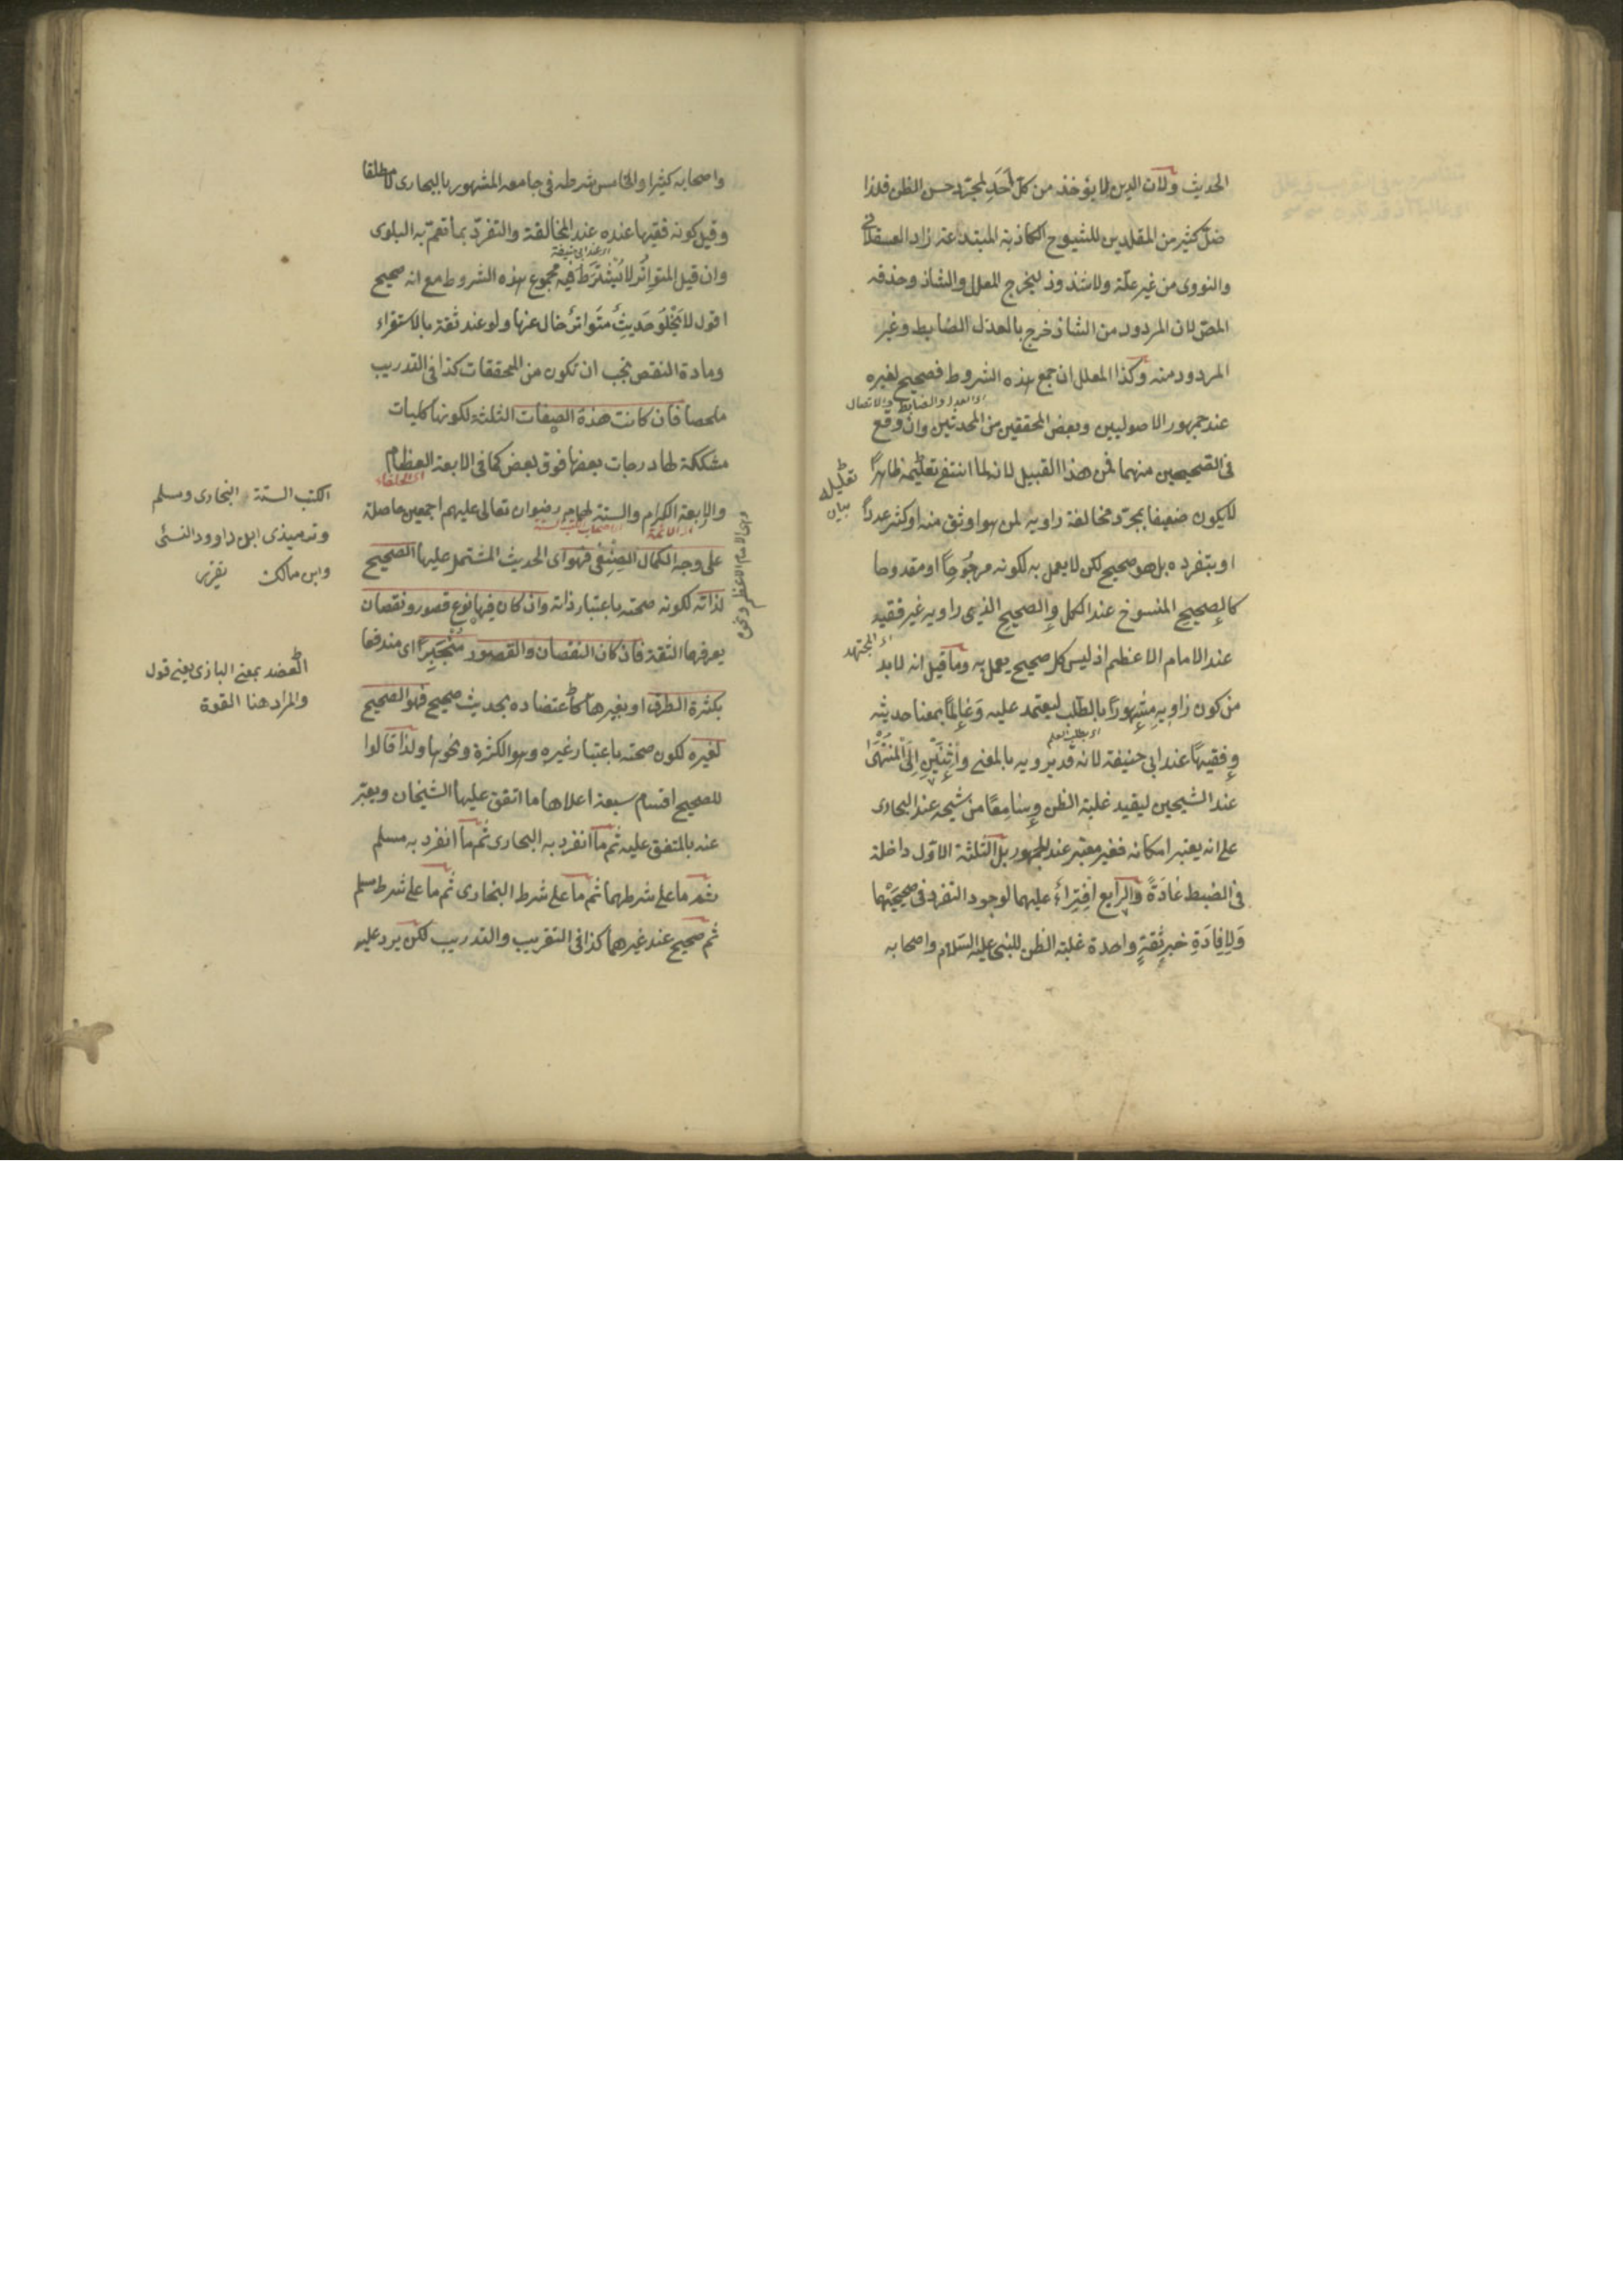 الحديث ولان الدين لا يؤخذ من كل احد لمجرد حسن الظن فلذا
ضل كثير من المقلدين للشيوخ الكاذبة المبتدعة زاد العسقلانى
والنووى من غير علة ولا شذوذ ليخرج المعلل والشاذ وحذفه
المص لان المردود من الشاذ خرج بالمعدل الضابط وغير
المردود منه وكذا المعلل ان جمع هذه الشروط فصحيح لغيره
اى العدل والضابط والاتصال
عند جمهور الاصوليين وبعض المحققين من المحدثين وان وقع
فى الصحيحين منهما فمن هذا القبيل لانه لما انتفى تعليله ظاهرًا
تعليله
بيان
لا يكون ضعيفا بمجرد مخالفة راويه لمن هو اوثق منه او كثر عددًا
او بتفرده بل هو صحيح لكن لا يعمل به لكونه مرجُوحًا او مقدوحا
كالصحيح المنسوخ عند الكل والصحيح الذى راويه غير فقيه
اى المجتهد
عند الامام الاعظم اذ ليس كل صحيح يعمل به وما قيل انه لا بد
من كون راويه مشهورًا بالطلب ليعتمد عليه وَعَالِمًا بمعنا حديثه
اى بطلب العلم
وفقيهًا عند ابى حنيفة لانه قد يرويه بالمعنى واِثْنَيْنِ اِلَى الْمُنْتَهَى
عند الشيخين ليفيد غلبة الظن وسَامِعًا من شيخه عند البخارى
على انه يعتبر امكانه فغير معتبر عند الجمهور بل الثلثة الاول داخلة
فى الضبط عَادَةً والرابع اِفْتِرَاءٌ عليهما لوجود التفرد فى صحيحَيْهما
وَلِاِفَادَةِ خبرِ ثِقَةٍ واحدة غلبة الظن للنبى عليه السلام واصحابه
واصحابه كثيرا والخامس شرطه فى جامعه المشهور بالبخارى لا مطلقا
وقيل كونه فقيها عنده عند المخالفة والتفرد بما تعم به البلوى
اى عند ابى حنيفة
وان قيل المتواتر لا يُشْتَرَطُ فيه مجموع هذه الشروط مع انه صحيح
اقول لا يَخْلُو حَدِيثٌ متواترٌ خال عنها ولو عند ثقة بالاستقراء
ومادة النقض يجب ان تكون من المحققات كذا فى التدريب
ملخصا فان كانت هذه الصفات الثلثة لكونها كليات
مشككة لها درجات بعضها فوق بعض كما فى الاربعة العظام
اى الخلفاء
والاربعة الكرام والستة لهمام رضوان تعالى عليهم اجمعين حاصلة
اى الائمة
اى اصحاب الكتب الستة
على وجه الكمال الصِنْفِى فهو اى الحديث المشتمل عليها الصحيح
لذاته لكونه صحته باعتبار ذاته وان كان فيها نوع قصور ونقصان
يعرفها الثقة فان كان النقصان والقصور مُنْجَبِرًا اى مندفعا
بكثرة الطرق او بغيرها كاعتضاده بحديث صحيح فهو الصحيح
لغيره لكون صحته باعتبار غيره وهو الكثرة ونحوها ولذا قالوا
للصحيح اقسام سبعة اعلاها ما اتفق عليها الشيخان ويعبر
عنه بالمتفق عليه ثم ما انفرد به البخارى ثم ما انفرد به مسلم
ثم ما على شرطهما ثم ما على شرط البخارى ثم ما على شرط مسلم
ثم صحيح عند غيرهما كذا فى التقريب والتدريب لكن يرد عليه
وهى الامام الاعظم ونحوه
الكتب الستة البخارى ومسلم
وترميذى ابى داوود النسئى
وابن مالك تقرير
العضد بمعنى البازى يعنى قول
والمراد هنا القوة